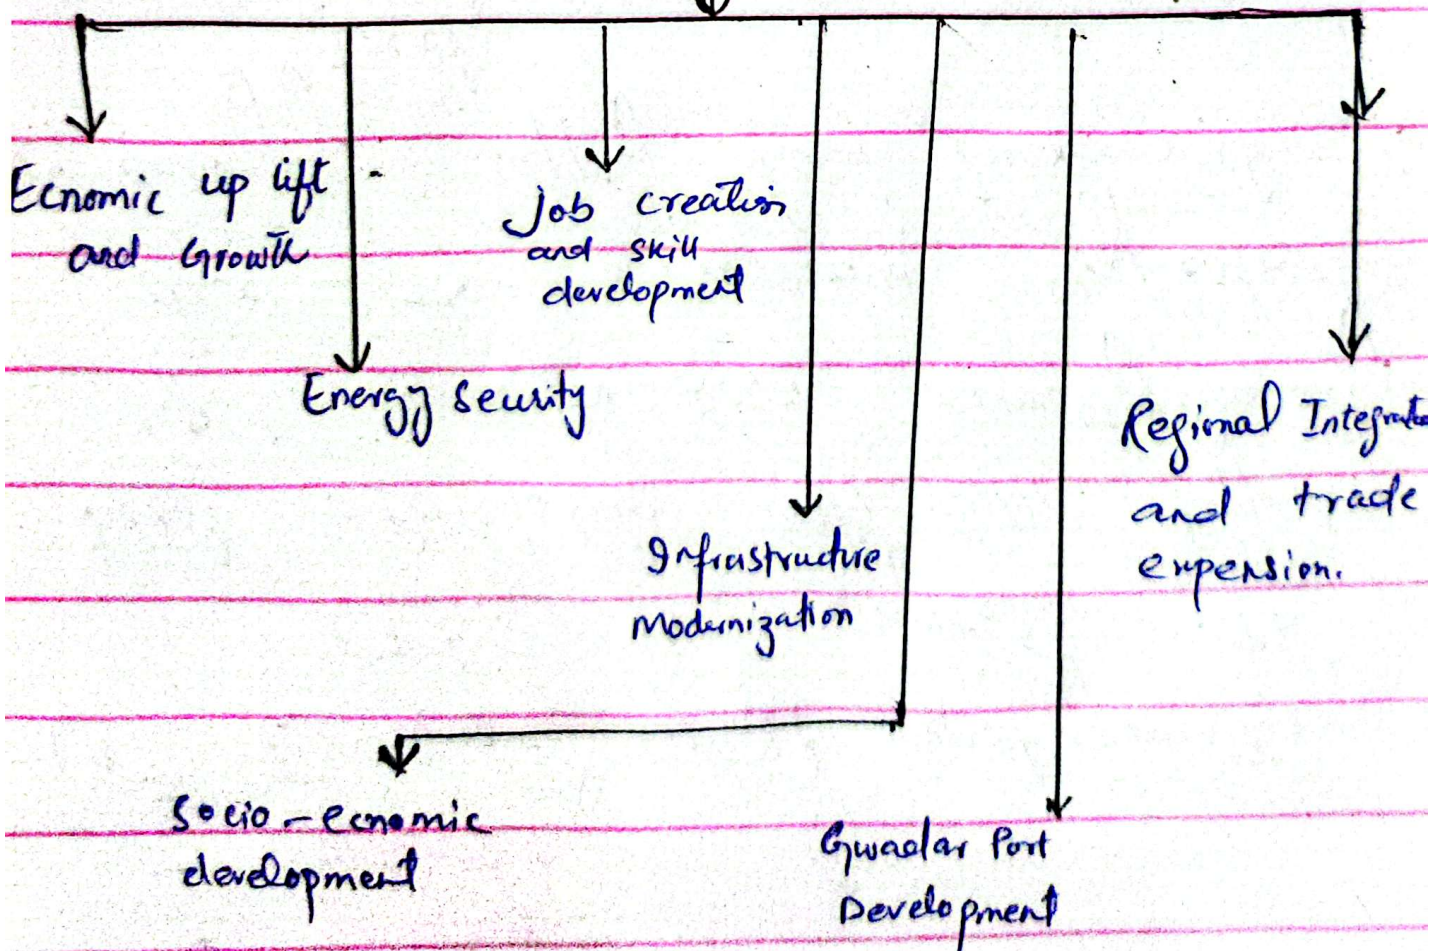 Ecnomic up lift
and Growth
Job creation
and skill
development
Energy security
Regional Integration
and trade
expension.
Infrastructure
Modernization
Socio-ecnomic
development
Gwadar Port
Development